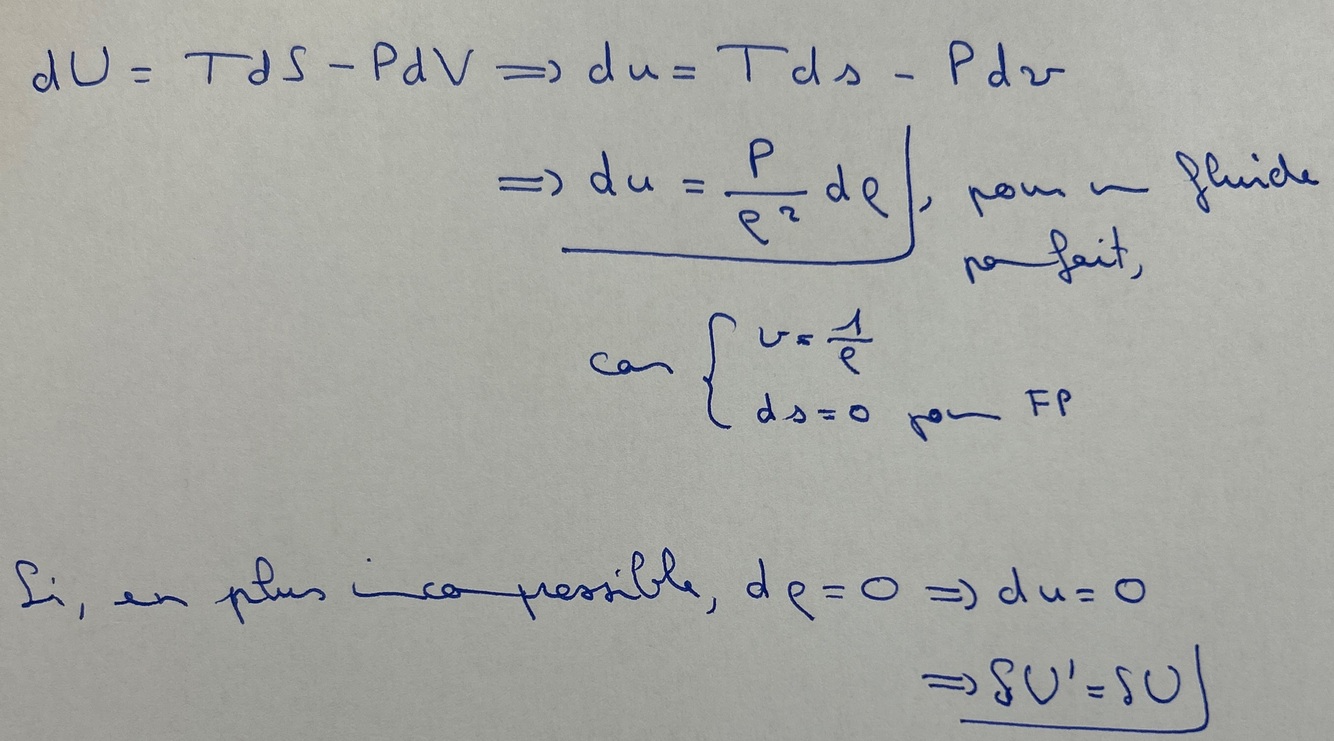 dU = TdS - PdV ⟹ du = Tds - Pdv
⟹ du = P/ρ² dρ, pour un fluide
parfait,
car { v = 1/ρ
ds = 0 pour FP
Si, en plus incompressible, dρ = 0 ⟹ du = 0
⟹ δU' = δU